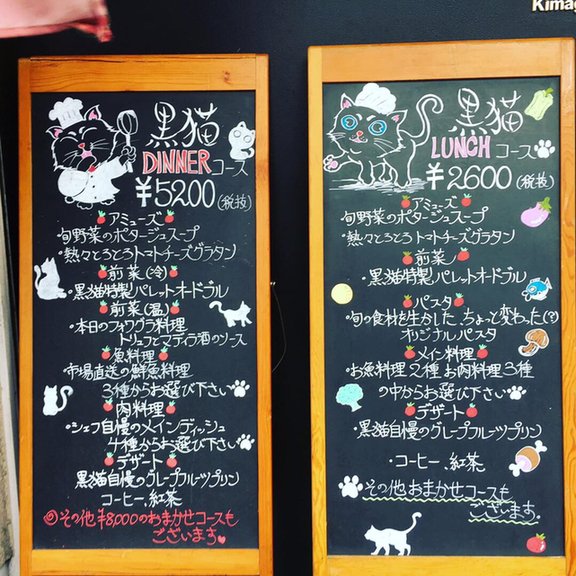 Kimag
黒猫
DINNERコース
¥5200(税抜)
アミューズ
旬野菜のポタージュスープ
・熱々とろとろトマトチーズグラタン
前菜(冷)
・黒猫特製パレットオードブル
前菜(温)
・本日のフォワグラ料理
トリュフとマディラ酒のソース
魚料理
市場直送の鮮魚料理
3種からお選び下さい
肉料理
・シェフ自慢のメインディッシュ
4種からお選び下さい
デザート
黒猫自慢のグレープフルーツプリン
コーヒー、紅茶
◎その他¥8,000のおまかせコースも
ございます♥
黒猫
LUNCHコース
¥2600(税抜)
アミューズ
旬野菜のポタージュスープ
・熱々とろとろトマトチーズグラタン
前菜
・黒猫特製パレットオードブル
パスタ
・旬の食材を生かした、ちょっと変わった(?)
オリジナルパスタ
メイン料理
・お魚料理2種 お肉料理3種
の中からお選び下さい
デザート
・黒猫自慢のグレープフルーツプリン
・コーヒー、紅茶
その他おまかせコースも
ございます。